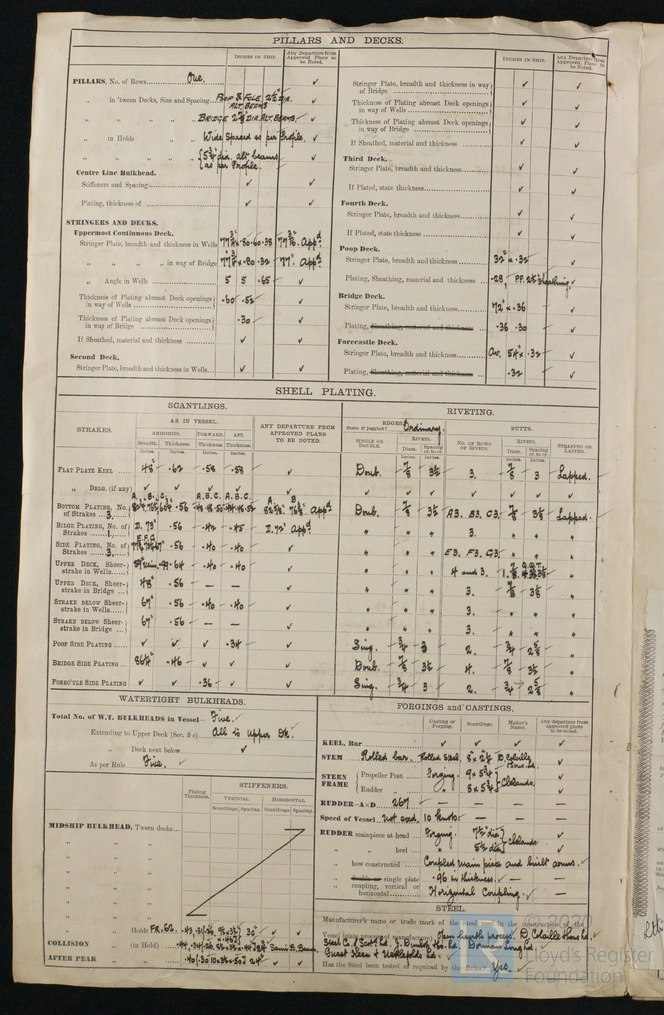 PILLARS AND DECKS.
INCHES IN SHIP.
Any Departure from Approved Plans to be Noted.
PILLARS, No. of Rows One ✓
„ in 'tween Decks, Size and Spacing Poop & Fcle 2½" dia. ✓
ALT. BEAMS
„ „ „ BRIDGE 2⅞" DIA. ALT. BEAMS. ✓
„ in Holds „ „ Wide Spaced as per Profile. ✓
„ „ „ „ dia. alt. beams ✓
as per Profile.
Centre Line Bulkhead.
Stiffeners and Spacing ✓ ✓
Plating, thickness of ✓ ✓
STRINGERS AND DECKS.
Uppermost Continuous Deck.
Stringer Plate, breadth and thickness in Wells
„ „ „ „ in way of Bridge
„ Angle in Wells 5 5 .65 ✓
Thickness of Plating abreast Deck openings in way of Wells .60 .52 ✓
Thickness of Plating abreast Deck openings in way of Bridge .30 ✓
If Sheathed, material and thickness ✓ ✓
Second Deck.
Stringer Plate, breadth and thickness in Wells ✓ ✓
INCHES IN SHIP.
Any Departure from Approved Plans to be Noted.
Stringer Plate, breadth and thickness in way of Bridge ✓ ✓
Thickness of Plating abreast Deck openings in way of Wells ✓ ✓
Thickness of Plating abreast Deck openings in way of Bridge ✓ ✓
If Sheathed, material and thickness ✓ ✓
Third Deck.
Stringer Plate, breadth and thickness ✓ ✓
If Plated, state thickness ✓ ✓
Fourth Deck.
Stringer Plate, breadth and thickness ✓ ✓
If Plated, state thickness ✓ ✓
Poop Deck.
Stringer Plate, breadth and thickness 32" x .32 ✓
Plating, Sheathing, material and thickness .28 PP. 2½ Sheathing ✓
Bridge Deck.
Stringer Plate, breadth and thickness 72" x .36 ✓
Plating, Sheathing, material and thickness .36 .30 ✓
Forecastle Deck.
Stringer Plate, breadth and thickness Av. 54" x .32 ✓
Plating, Sheathing, material and thickness .32 ✓
SHELL PLATING.
SCANTLINGS.
RIVETING.
STRAKES.
AS IN VESSEL.
AMIDSHIPS. FORWARD. AFT.
Breadth. Thickness. Thickness. Thickness.
Inches. Inches. Inches. Inches.
ANY DEPARTURE FROM APPROVED PLANS TO BE NOTED.
EDGES. Ordinary.
State if joggled?
SINGLE OR DOUBLE.
RIVETS.
Diam. Spacing cr. to cr.
Inches. Inches.
BUTTS.
NO. OF ROWS OF RIVETS.
RIVETS.
Diam. Spacing cr. to cr.
Inches. Inches.
STRAPPED OR LAPPED.
FLAT PLATE KEEL 48" .62 .58 .58 ✓ Doub. ⅞ 3½ 3. ⅞ 3 Lapped.
„ DBLG. (if any) ✓ ✓ ✓ ✓ ✓ ✓ ✓ ✓ ✓ ✓ ✓ ✓
A. B. C. A.B.C. A.B.C. A. B.
BOTTOM PLATING, No. of Strakes 3. .56 Doub. ⅞ 3½ A3. B3. C3. ⅞ Lapped.
BILGE PLATING, No. of Strakes 1. D. 73" .56 .42 .45 D. 72" Appd. „ „ „ 3. „ „ „
E.F.G.
SIDE PLATING, No. of Strakes 3. .56 .40 .40 ✓ „ „ „ E3. F3. G3. „ „ „
UPPER DECK, Sheerstrake in Wells .64 .40 .40 ✓ „ „ „ 4 and 3. „
UPPER DECK, Sheerstrake in Bridge 48" .56 — — ✓ „ „ „ 3. „
STRAKE BELOW Sheerstrake in Wells 67" .56 .40 .40 ✓ „ „ „ 3. „ „ „
STRAKE BELOW Sheerstrake in Bridge 67" .56 — — ✓ „ „ „ 3. „ „ „
POOP SIDE PLATING ✓ ✓ ✓ .34 ✓ Sing. ¾ 3 2. ¾ 2⅝ „
BRIDGE SIDE PLATING 86¼" .46 ✓ ✓ ✓ Doub. ⅞ 3½ 4. ⅞ 3½ „
FOREC'LE SIDE PLATING ✓ ✓ .36 ✓ ✓ Sing. ¾ 3 2. ¾ 2⅝ „
WATERTIGHT BULKHEADS.
Total No. of W.T. BULKHEADS in Vessel Five.
Extending to Upper Deck (Sec. 3 c) All to Upper Dk.
„ Deck next below ✓
As per Rule Five. ✓
Plating Thickness.
STIFFENERS.
VERTICAL. HORIZONTAL.
Scantlings. Spacing. Scantlings. Spacing.
MIDSHIP BULKHEAD, Tween decks
„ „
„ „
„ „
„ „
„ Holds FR. 62. 30" ✓ ✓
COLLISION „ (in Hold)
AFTER PEAK „ „ 24" ✓ ✓
FORGINGS and CASTINGS.
Casting or Forging. Scantlings. Maker's Name. Any departure from approved plans to be noted.
KEEL, Bar ✓ ✓ ✓ ✓
STEM Rolled bar. Rolled Steel. D. Colville & Sons Ld. ✓
STERN FRAME
Propeller Post Forging. 9 x 5¾ Clelands. ✓
Rudder „ „ 8 x 5¾ ✓
RUDDER—A x D 267 — — — —
Speed of Vessel Not exd. 10 knots. — — —
RUDDER mainpiece at head Forging. 7½" dia. Clelands. ✓
„ „ heel „ 5½" dia. ✓
„ how constructed Coupled main piece and built arms. ✓
„ double or single plate .96 in thickness. — ✓
„ coupling, vertical or horizontal Horizontal Coupling. ✓
STEEL.
Manufacturer's name or trade mark of the Steel used in the construction of the Vessel (state process of manufacture) Open hearth process. D. Colville & Sons Ld.
Steel Co. of Scotland. Dorman Long Ld.
Guest Keen & Nettlefolds Ld.
Has the Steel been tested as required by the Rules? Yes.
© 2020
Lloyd's Register
Foundation